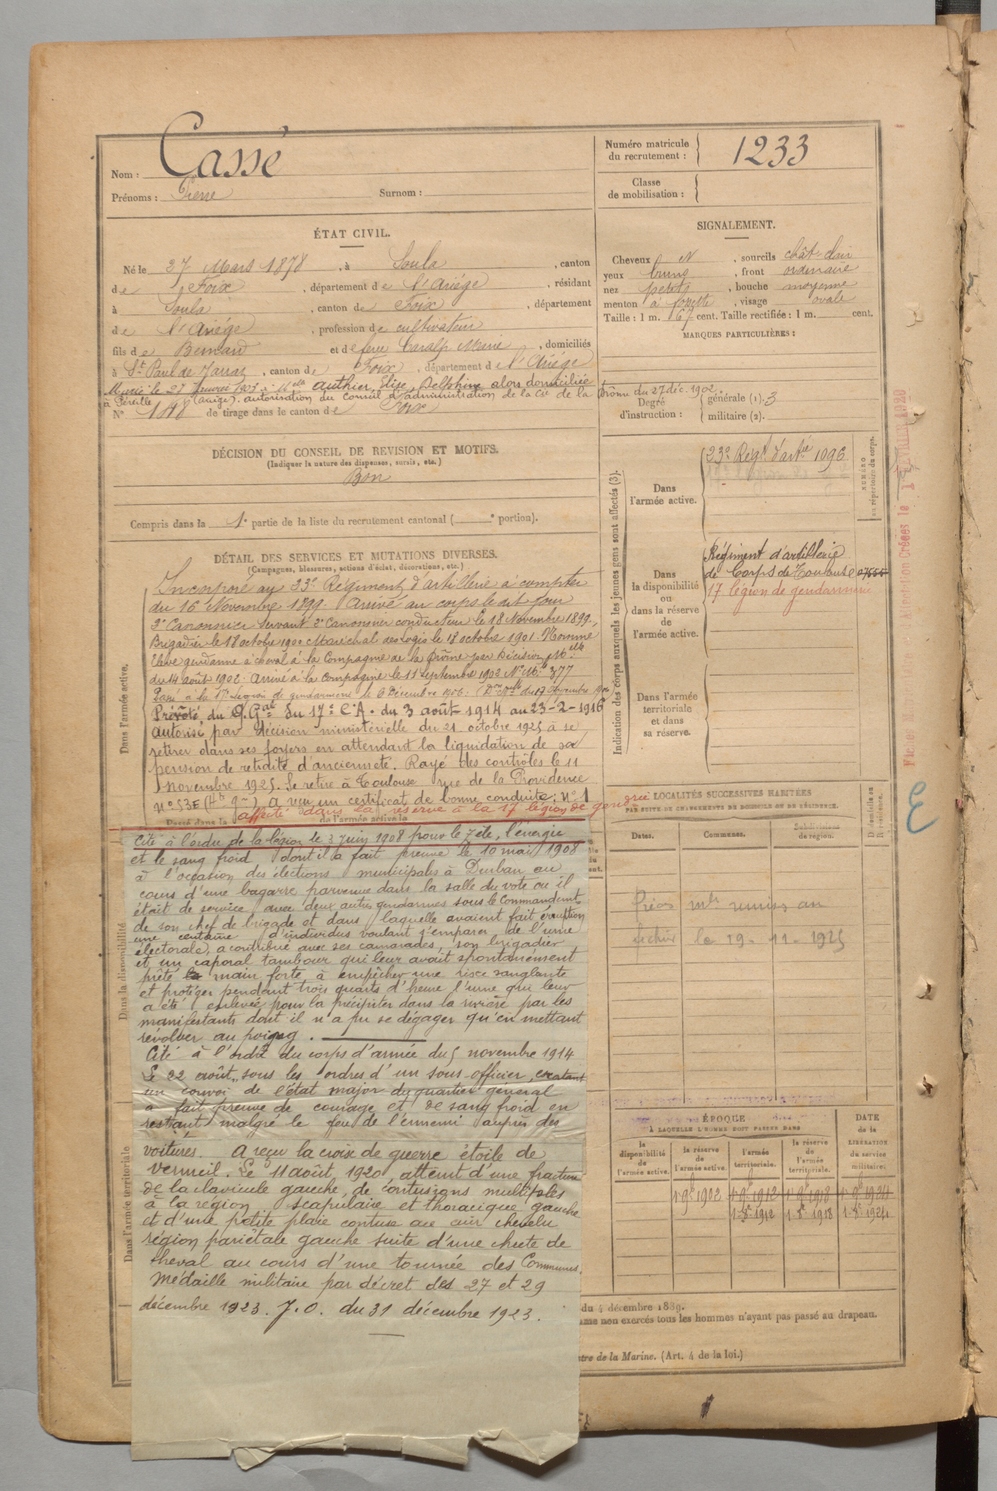 Nom : Cassé
Prénoms : Pierre Surnom :
Numéro matricule du recrutement : 1233
Classe de mobilisation :
ÉTAT CIVIL.
Né le 27 Mars 1878, à Soula, canton
de Foix, département de l'Ariège, résidant
à Soula, canton de Foix, département
de l'Ariège, profession de cultivateur
fils de Bernard et de feue Caralp Marie, domiciliés
à St Paul de Jarrat, canton de Foix, département de l'Ariège
Marié le 27 Janvier 1903 à Melle Authier Elise, Delphine alors domiciliée
à Péreille (Ariège). autorisation du Conseil d'administration de la Cie de la Drôme du 27 déc. 1902
N° 118 de tirage dans le canton de Foix
SIGNALEMENT.
Cheveux N, sourcils chât. clair
yeux bruns, front ordinaire
nez, bouche moyenne
menton à fossette, visage ovale
Taille : 1 m. 67 cent. Taille rectifiée : 1 m. cent.
MARQUES PARTICULIÈRES :
Degré d'instruction : générale (1). 3
militaire (2).
DÉCISION DU CONSEIL DE REVISION ET MOTIFS.
(Indiquer la nature des dispenses, sursis, etc.)
Bon
Compris dans la 1e partie de la liste du recrutement cantonal ( e portion).
DÉTAIL DES SERVICES ET MUTATIONS DIVERSES.
(Campagnes, blessures, actions d'éclat, décorations, etc.)
Dans l'armée active.
Incorporé au 23e Régiment d'artillerie à compter
du 16 Novembre 1899. Arrivé au corps le dit jour
2e Canonnier servant 2e Canonnier conducteur le 18 Novembre 1899.
Brigadier le 18 octobre 1900 Maréchal des logis le 18 octobre 1901. Nommé
Elève gendarme à cheval à la Compagnie de la Drôme par Décision Mtlle
du 14 août 1902. Arrivé à la compagnie le 11 septembre 1902 N° Mle 377
Passé à la 17e Légion de gendarmerie le 6 Décembre 1906.
Prévôté du Q. Gal du 17e C.A. du 3 août 1914 au 23-2-1916
Autorisé par Décision ministérielle du 21 octobre 1925 à se
retirer dans ses foyers en attendant la liquidation de sa
pension de retraite d'ancienneté. Rayé des contrôles le 11
novembre 1925. Se retire à Toulouse rue de la Providence
n° 53E (Hte g-) a reçu un certificat de bonne conduite : n° 1
affecté dans la réserve à la 17 légion de gendrie
de l'armée active le
Cité à l'ordre de la légion le 3 juin 1908 pour le zèle, l'énergie
et le sang froid dont il a fait preuve le 10 mai 1908
à l'occasion des élections municipales à Durban au
cours d'une bagarre parvenue dans la salle du vote où il
était de service, avec deux autres gendarmes sous le Commandemt
de son chef de brigade et dans laquelle avaient fait éruption
une centaine d'individus voulant s'emparer de l'urne
électorale, a contribué avec ses camarades, son brigadier
et un caporal tambour qui leur avait spontanément
prêté la main forte, à empêcher une rixe sanglante
et protéger pendant trois quarts d'heure l'urne qui leur
a été enlevée pour la précipiter dans la rivière par les
manifestants dont il n'a pu se dégager qu'en mettant
révolver au poing.
Cité à l'ordre du corps d'armée du 5 novembre 1914
Le 22 août, sous les ordres d'un sous-officier, escortant
un convoi de l'état major du quartier général
a fait preuve de courage et de sang froid en
restant malgré le feu de l'ennemi auprès des
voitures. A reçu la croix de guerre étoile de
Vermeil. Le 11 août 1920 atteint d'une fracture
de la clavicule gauche, de contusions multiples
à la région scapulaire et thoracique gauche
et d'une petite plaie contuse au cuir chevelu
région pariétale gauche suite d'une chute de
cheval au cours d'une tournée des Communes.
Médaille militaire par décret des 27 et 29
décembre 1923. J.O. du 31 décembre 1923.
Dans la disponibilité
Dans l'armée territoriale
Indication des corps auxquels les jeunes gens sont affectés (3).
NUMÉRO au répertoire du corps.
Dans l'armée active.
23e Régt d'artie 1096
Dans la disponibilité ou dans la réserve de l'armée active.
Régiment d'artillerie
de Corps de Toulouse
17 légion de gendarmerie
Dans l'armée territoriale et dans sa réserve.
LOCALITÉS SUCCESSIVES HABITÉES
PAR SUITE DE CHANGEMENTS DE DOMICILE OU DE RÉSIDENCE.
Dates. Communes. Subdivisions de région. Domicile ou Résidence.
Pièces mles remises au
fichier le 19-11-1925
ÉPOQUE
À LAQUELLE L'HOMME DOIT PASSER DANS
la disponibilité de l'armée active. la réserve de l'armée active. l'armée territoriale. la réserve de l'armée territoriale.
DATE de la LIBÉRATION du service militaire.
1 9bre 1902 1 9bre 1912 1 9bre 1918 1 9bre 1924
1 8bre 1912 1 8bre 1918 1 8bre 1924
du 4 décembre 1889.
non exercés tous les hommes n'ayant pas passé au drapeau.
de la Marine. (Art. 4 de la loi.)